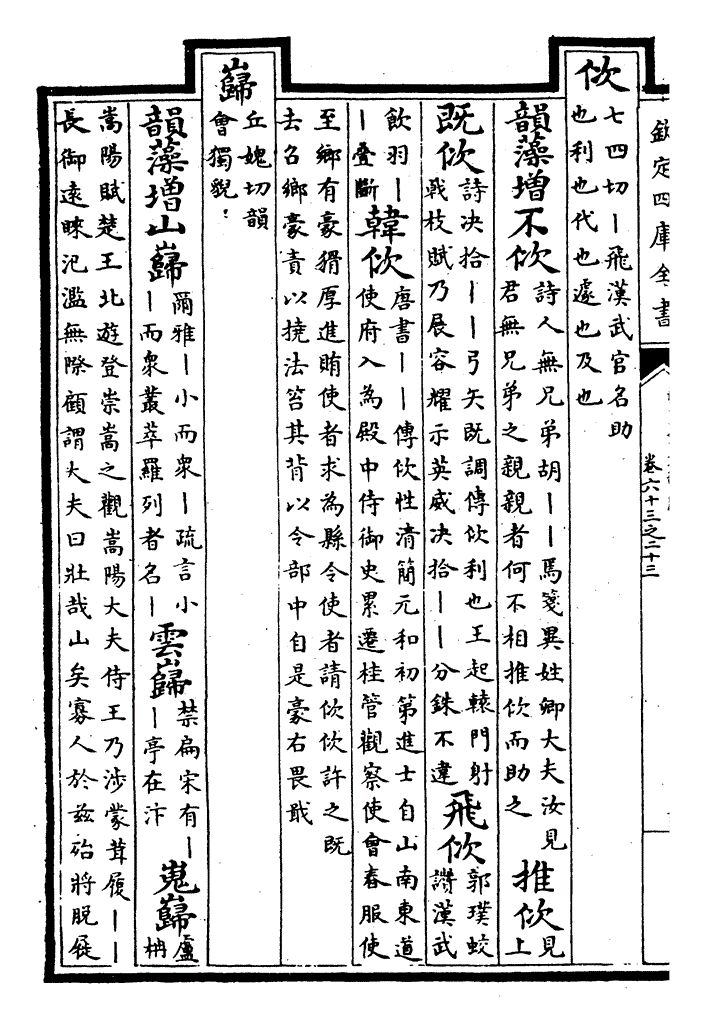 欽定四庫全書
卷六十三之二十三
佽
七四切丨飛漢武官名助
也利也代也遽也及也
韻藻增不佽
詩人無兄弟胡丨丨焉箋異姓卿大夫汝見
君無兄弟之親親者何不相推佽而助之
推佽
見
上
既佽
詩决拾丨丨弓矢既調傳佽利也王起轅門射
戟枝賦乃展容耀示英威决拾丨丨分銖不違
飛佽
郭璞蛟
讚漢武
飲羽丨
丨疊斷
韓佽
唐書丨丨傳佽性清簡元和初第進士自山南東道
使府入為殿中侍御史累遷桂管觀察使會春服使
至鄉有豪猾厚進賄使者求為縣令使者請佽佽許之既
去召鄉豪責以撓法笞其背以令部中自是豪右畏戢
巋
丘媿切韻
會獨貌：
韻藻增山巋
爾雅丨小而衆丨疏言小
丨而衆叢萃羅列者名丨
雲巋
禁扁宋有丨
丨亭在汴
嵬巋
盧
柟
嵩陽賦楚王北遊登崇嵩之觀嵩陽大夫侍王乃涉蒙茸履丨丨
長御遠睞氾濫無際顧謂大夫曰壯哉山矣寡人於兹殆將脫屣